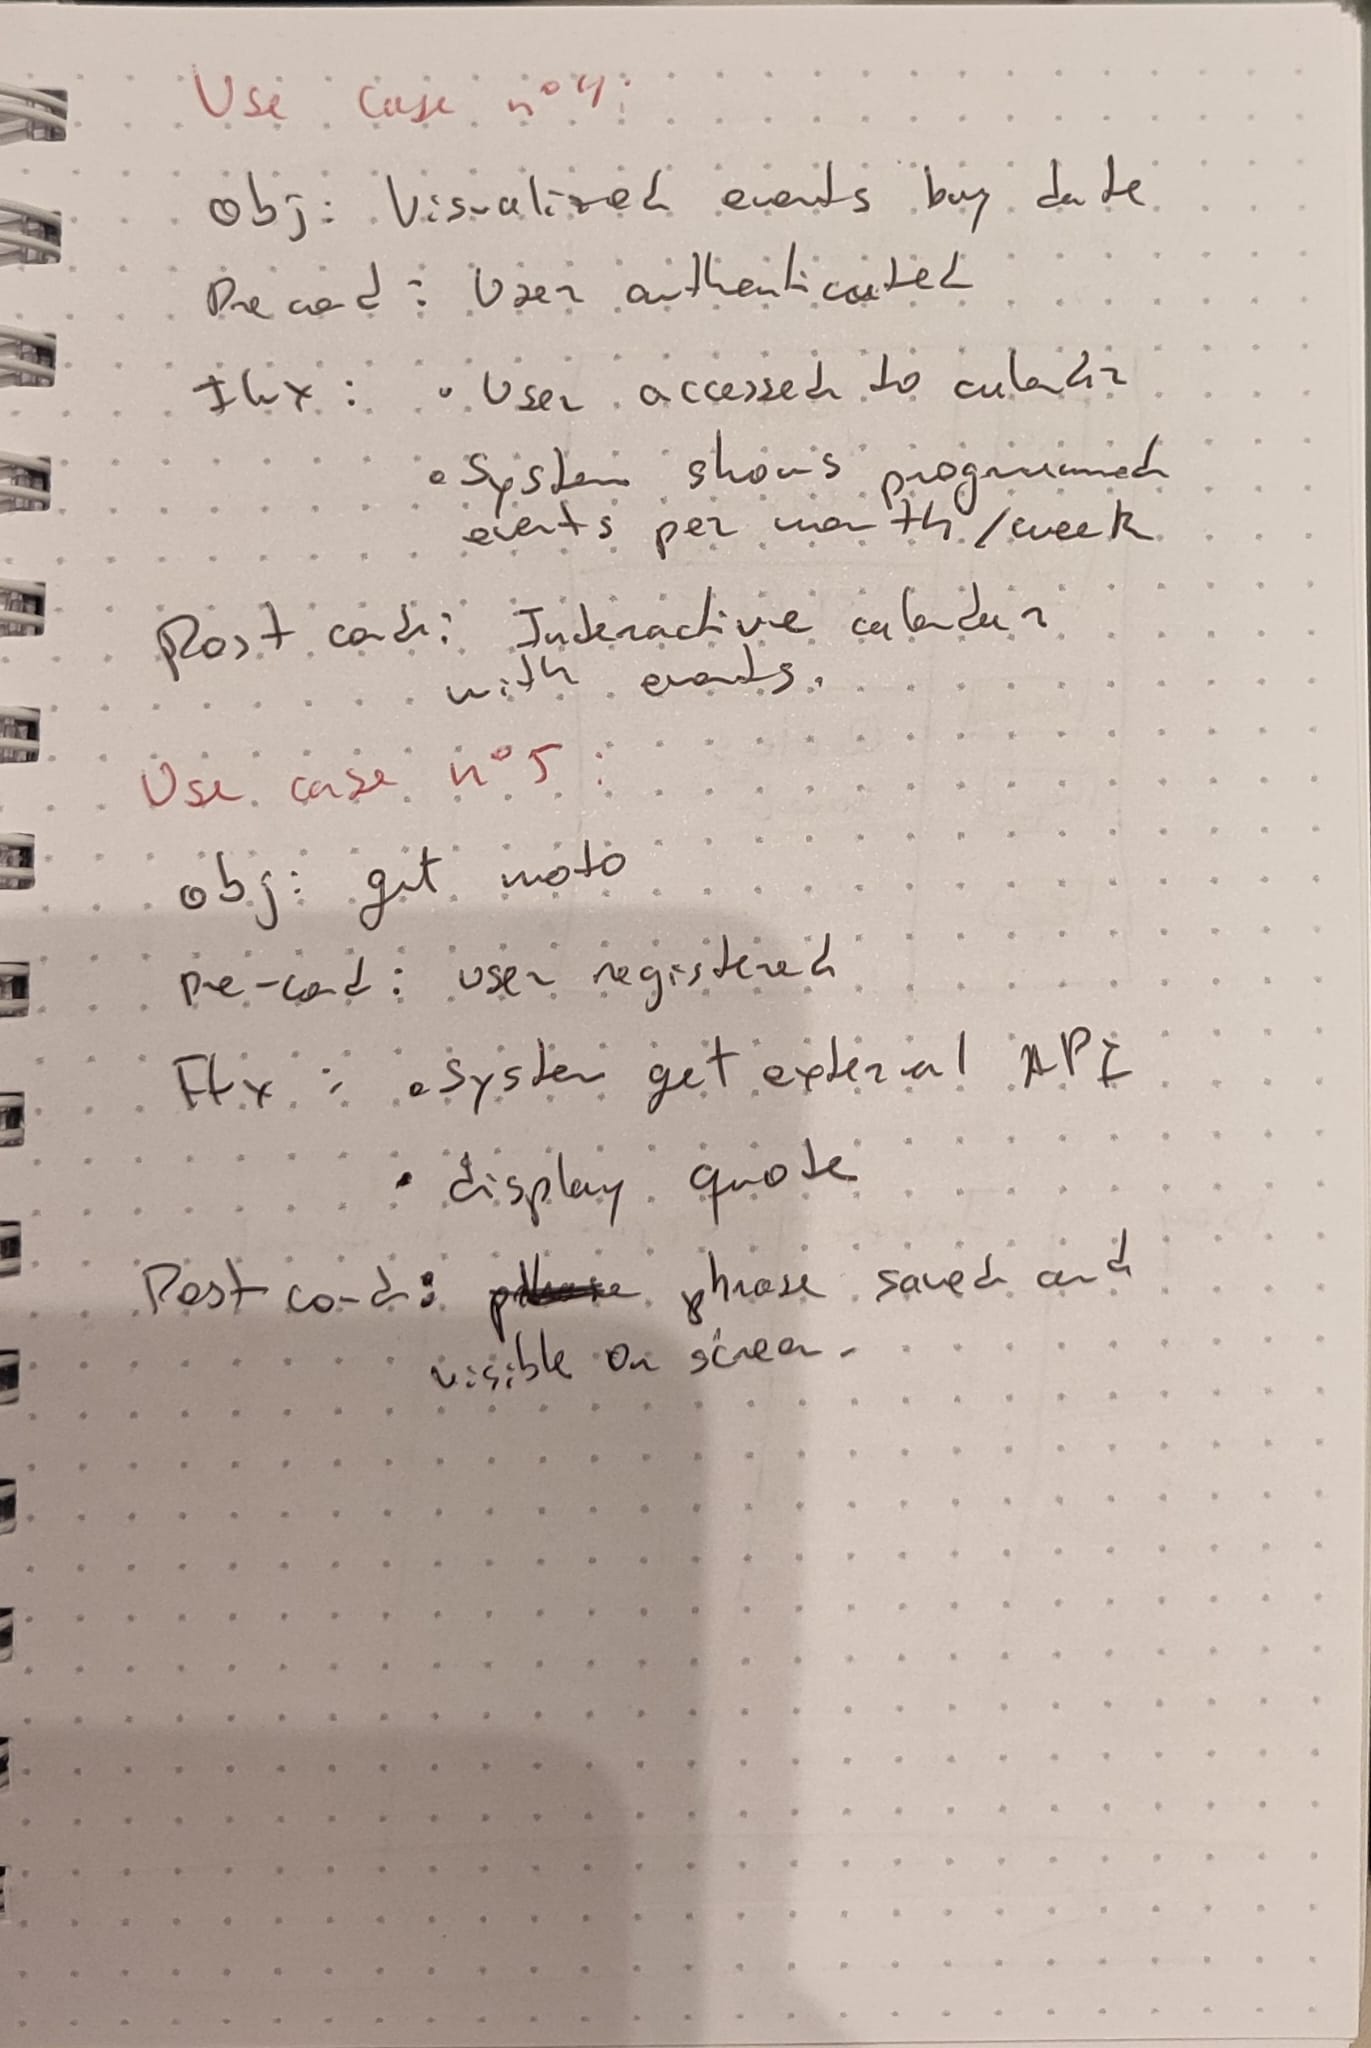 Use case n°4:
Obj: Visualized events buy date
Pre cond: User authenticated
Flux: • User accessed to calendar
• System shows programmed
events per month/week
Post cond: Interactive calendar
with events.
Use case n°5:
obj: get moto
pre-cond: user registered
Flux: • System get external API
• display quote
Post cond: phrase saved and
visible on screen.